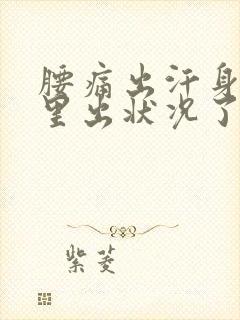 腰痛出汗身
里出状况了
紫菱